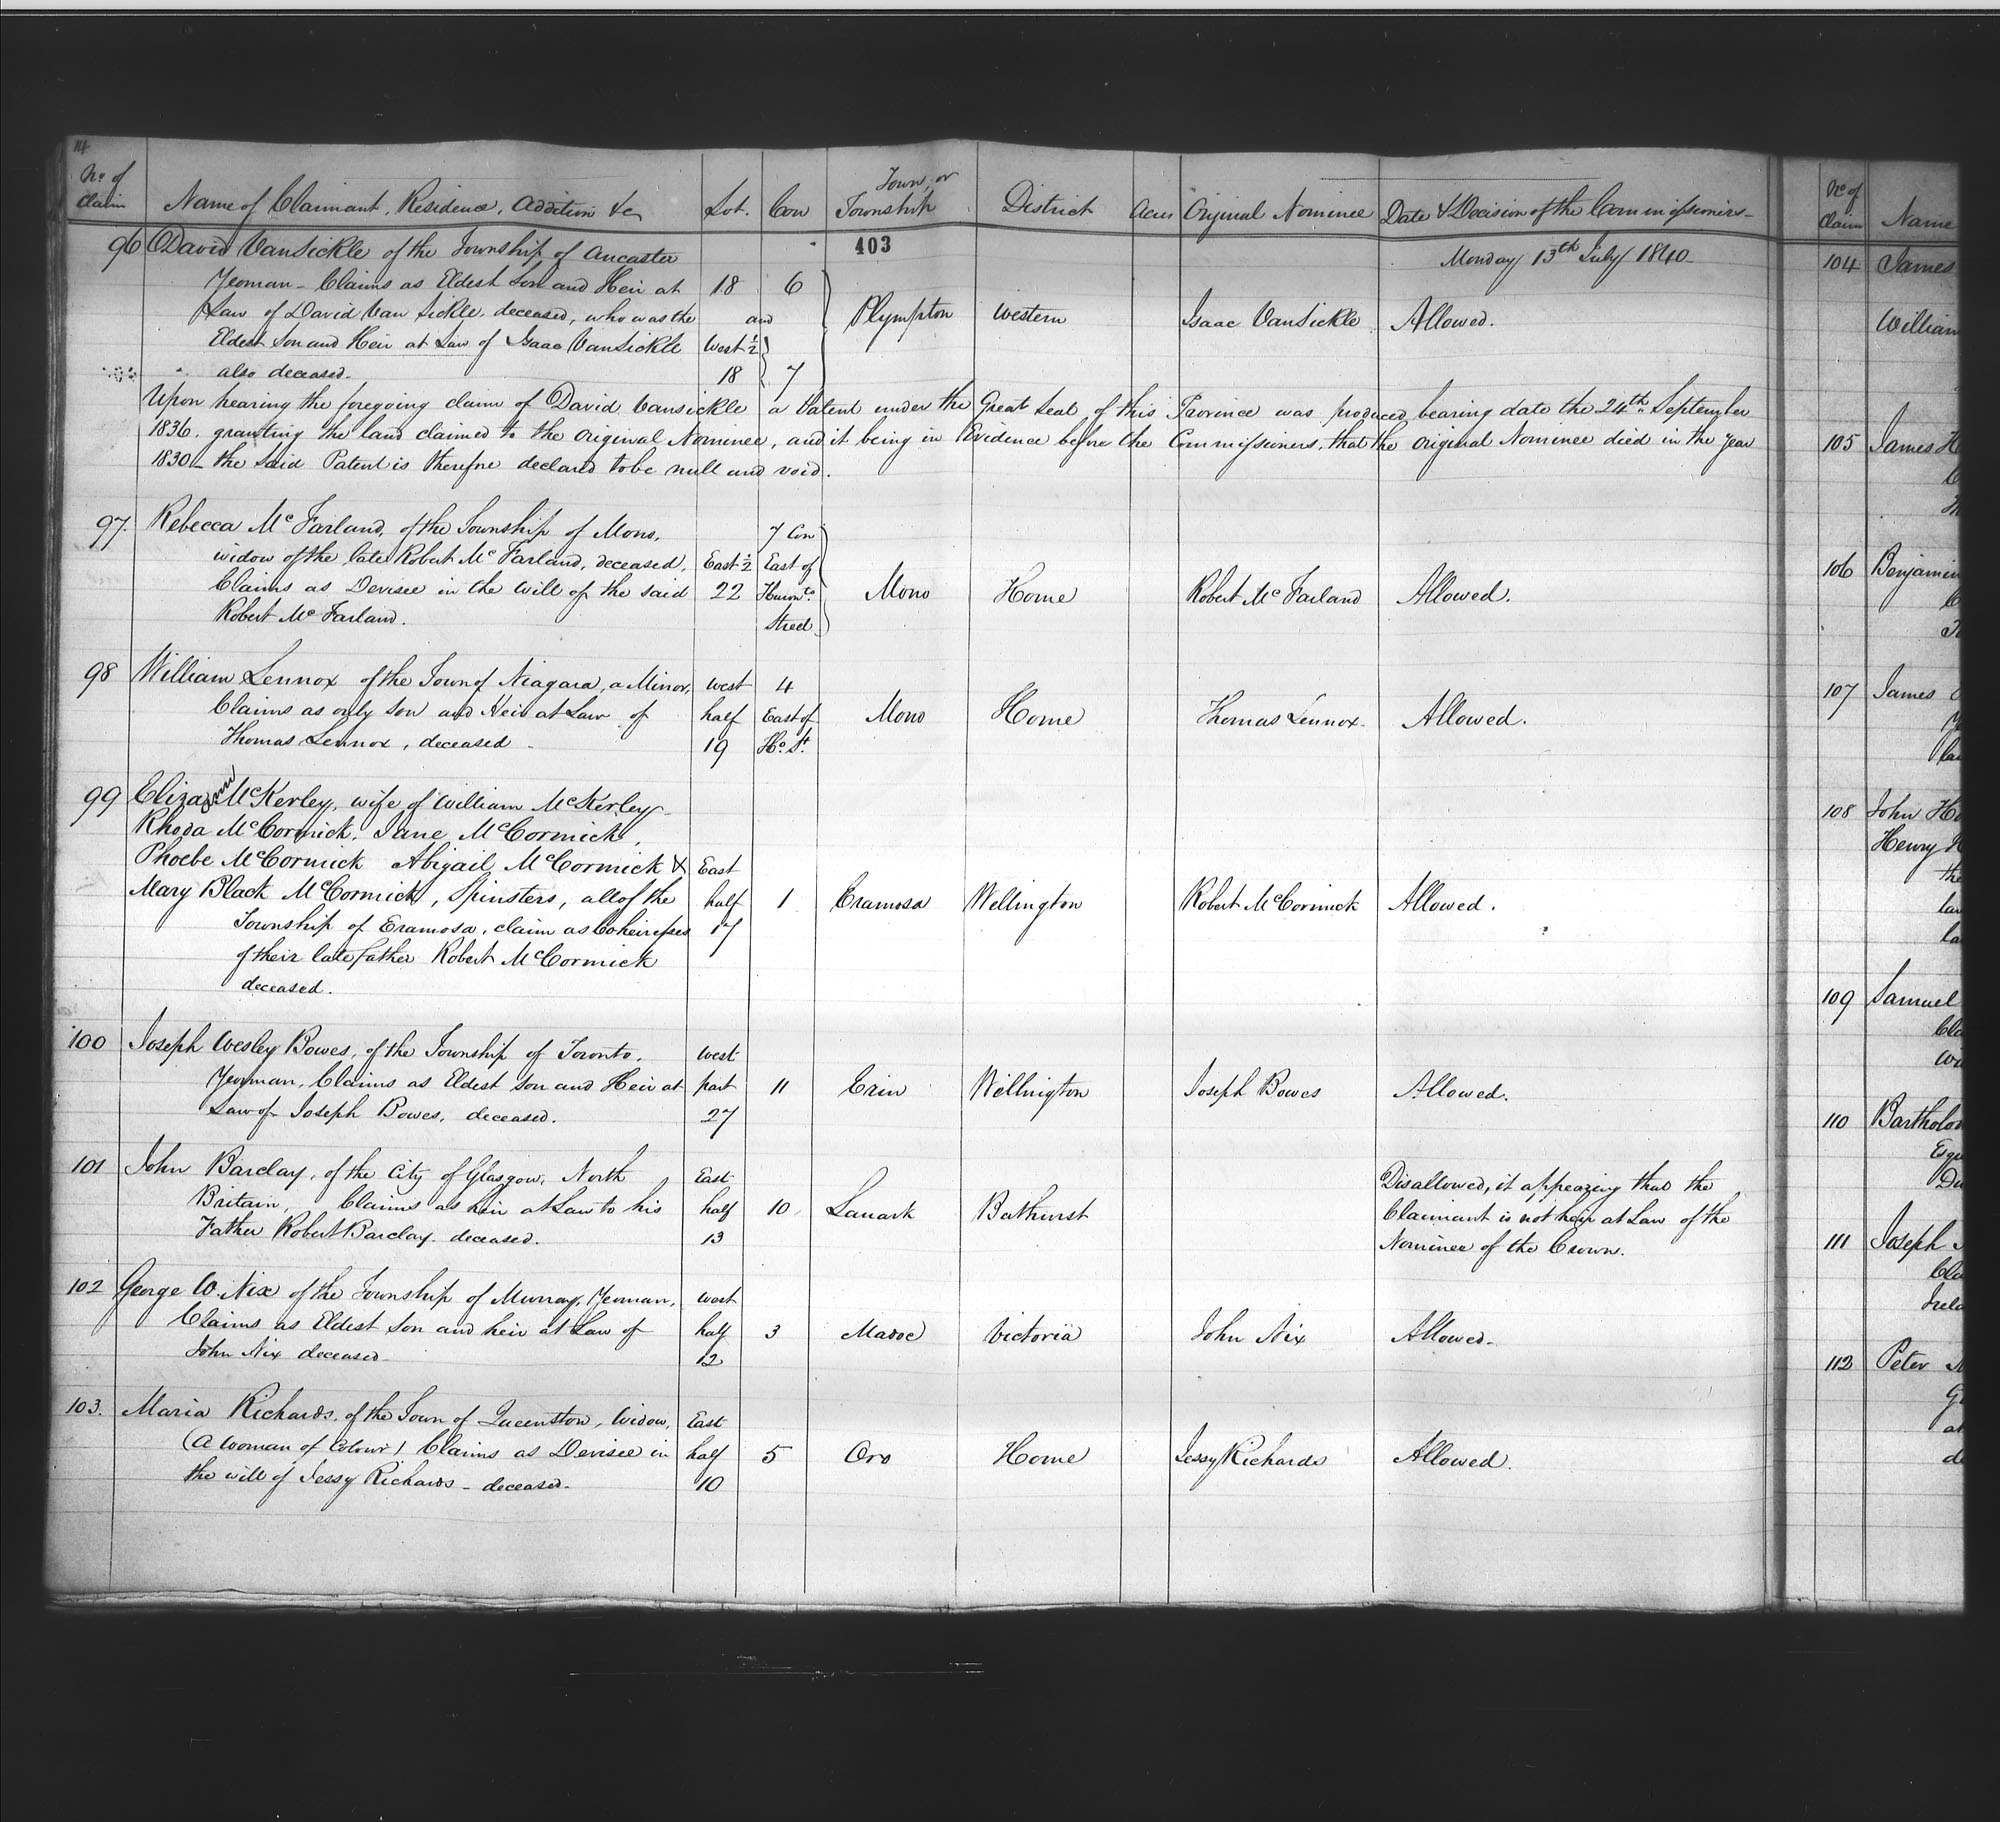 114
No. of Claim | Name of Claimant, Residence, Addition &c | Lot. | Con | Town, or Township | District | Acres | Original Nominee | Date & Decision of the Commissioners
403
Monday 13th July 1840
96 David VanSickle of the Township of Ancaster
Yeoman - Claims as Eldest Son and Heir at | 18 | 6
Law of David Van Sickle, deceased, who was the | and | Plympton | Western | Isaac VanSickle | Allowed.
Eldest Son and Heir at Law of Isaac VanSickle | West ½
also deceased. | 18 | 7
Upon hearing the foregoing claim of David Vansickle a Patent under the Great Seal of this Province was produced, bearing date the 24th September
1836. granting the land claimed to the original Nominee, and it being in Evidence before the Commissioners, that the original Nominee died in the year
1830 - the said Patent is therefore declared to be null and void.
97. Rebecca McFarland, of the Township of Mono, | 7 Con
widow of the late Robert McFarland, deceased, | East ½ | East of
Claims as Devisee in the Will of the said | 22 | Huronto. | Mono | Home | Robert McFarland | Allowed.
Robert McFarland. | Street
98 William Lennox of the Town of Niagara, a Minor, | West | 4
Claims as only son and Heir at Law of | half | East of | Mono | Home | Thomas Lennox. | Allowed.
Thomas Lennox, deceased - | 19 | Ho. St.
99 Eliza Ann McKerley, wife of William McKerley
Rhoda McCormick, Jane McCormick,
Phoebe McCormick Abigail McCormick & | East
Mary Black McCormick, Spinsters, all of the | half | 1 | Eramosa | Wellington | Robert McCormick | Allowed.
Township of Eramosa, claim as Coheiresses | 17
of their late father Robert McCormick
deceased.
100 Joseph Wesley Bowes, of the Township of Toronto, | West
Yeoman, Claims as Eldest son and Heir at | part | 11 | Erin | Wellington | Joseph Bowes | Allowed.
Law of Joseph Bowes, deceased. | 27
101 John Barclay, of the City of Glasgow, North | East | Disallowed, it appearing that the
Britain, Claims as heir at Law to his | half | 10 | Lanark | Bathurst | Claimant is not heir at Law of the
Father Robert Barclay deceased. | 13 | Nominee of the Crown.
102 George W. Nix of the Township of Murray, Yeoman, | West
Claims as Eldest Son and heir at Law of | half | 3 | Madoc | Victoria | John Nix | Allowed-
John Nix deceased | 12
103. Maria Richards, of the Town of Queenston, Widow, | East
(A Woman of Colour) Claims as Devisee in | half | 5 | Oro | Home | Jessy Richards | Allowed.
the will of Jessy Richards - deceased. | 10
No. of Claim | Name
104 James
William
105 James H
106 Benjamin
107 James
108 John Ho
Henry H
the
109 Samuel
Cla
110 Bartholom
Esqu
111 Joseph
Cla
Irela
112 Peter